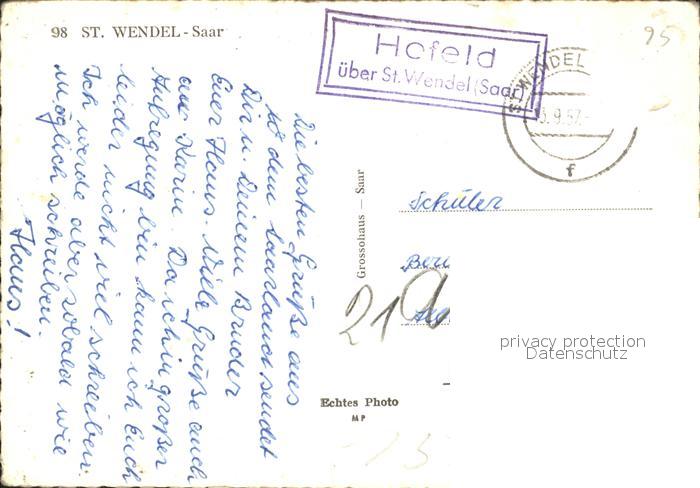 98 ST. WENDEL - Saar
95
Hofeld
über St. Wendel (Saar)
ST. WENDEL
.9.57.-
f
Die besten Grüße aus
dem Saarland sendet
Dir u. Deinem Bruder
Euer Hans. Viele Grüße auch
an Karin. Da ich in großer
Aufregung bin kann ich Euch
leider nicht viel schreiben.
Ich werde aber sobald wie
möglich schreiben.
Hans!
Grossohaus – Saar
Schüler
21
Echtes Photo
MP
privacy protection
Datenschutz